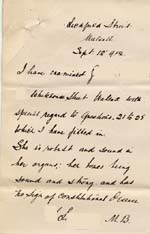 Street
Walsall
Sept 12th 1912
I have examined
Street Walsall with
special regard to questions, 21 to 25
which I have filled in.
She is robust and sound in
her organs; her knees being
sound and strong and has
no sign of constitutional disease
M.B.